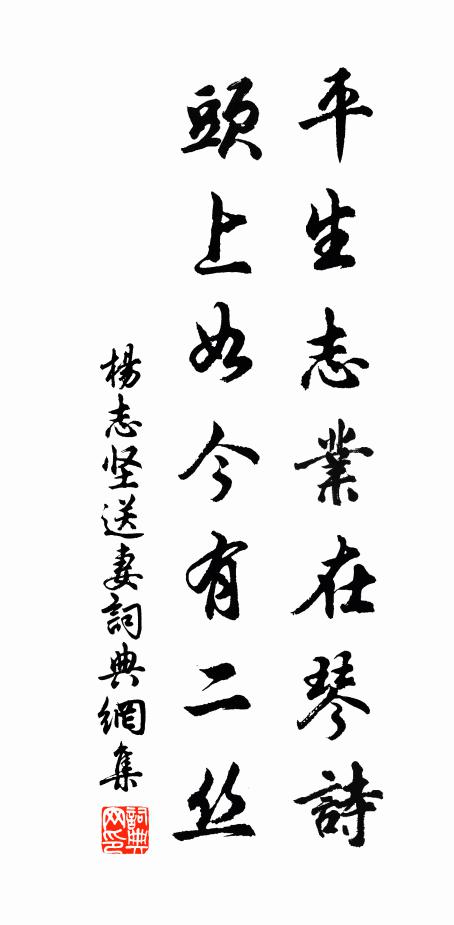 平生志業在琴詩
頭上如今有二丝
楊志坚送妻詞典網集
詞典网印